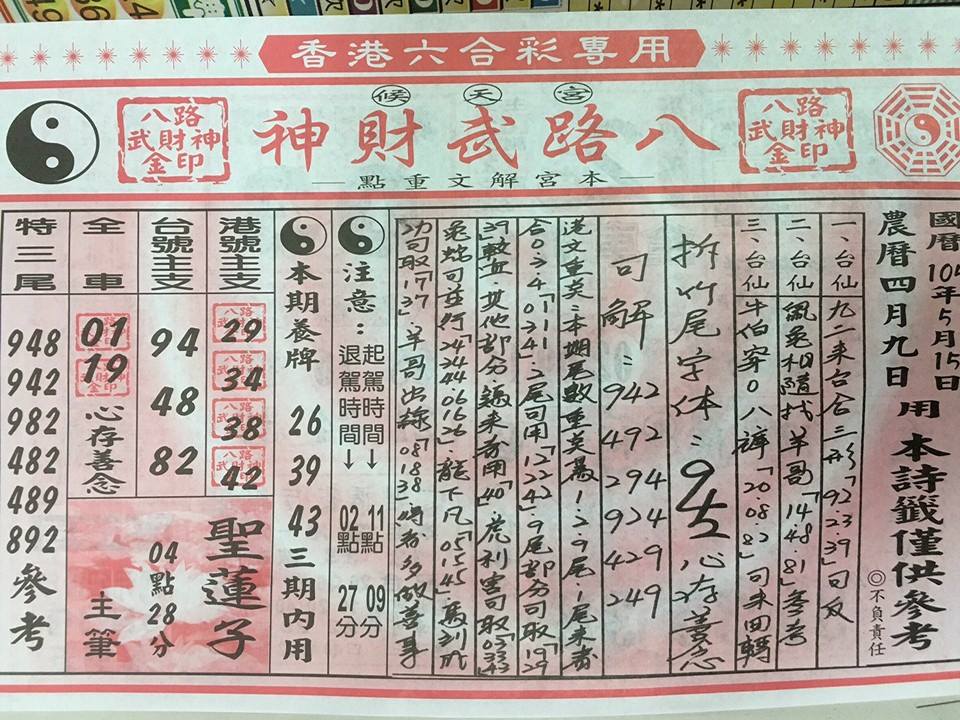 香港六合彩專用
候天宮
八路武財神
八路
武財神
金印
八路
武財神
金印
本宮解文重點
國曆104年5月15日
農曆四月九日用
本詩籤僅供參考
◎不負責任
一、台仙 九二來合合三形「92.23.39」可反
二、台仙 氣兔相隨找羊哥「14.48.81」參考
三、台仙 牛伯穿0八褲「20.08.82」可來回轉
拆竹尾字体：
心存善念
可解：942 492 294 924 429 249
港文重英：本期尾數重英萬1.2.9尾1尾來香
合0.3.4「01.14」2尾可用「12.22.42」.9尾部分可取「19.29
39」較宜.其他部分過來哥用「40」.虎利害可取「03.33.43
兔蛇可並行「24.34.44.06.16.26」.龍下凡「05.15.45」.馬到成
功可取「17.37」.羊哥出線「08.18.38」
注意：
起駕時間↓ 11點09分
退駕時間↓ 02點27分
本期養牌
26
39
43
三期內用
港號主支
29
34
38
42
台號主支
94
48
82
全車
01
19
心存善念
聖蓮子
04點28分
主筆
特三尾
948
942
982
482
489
892
參考